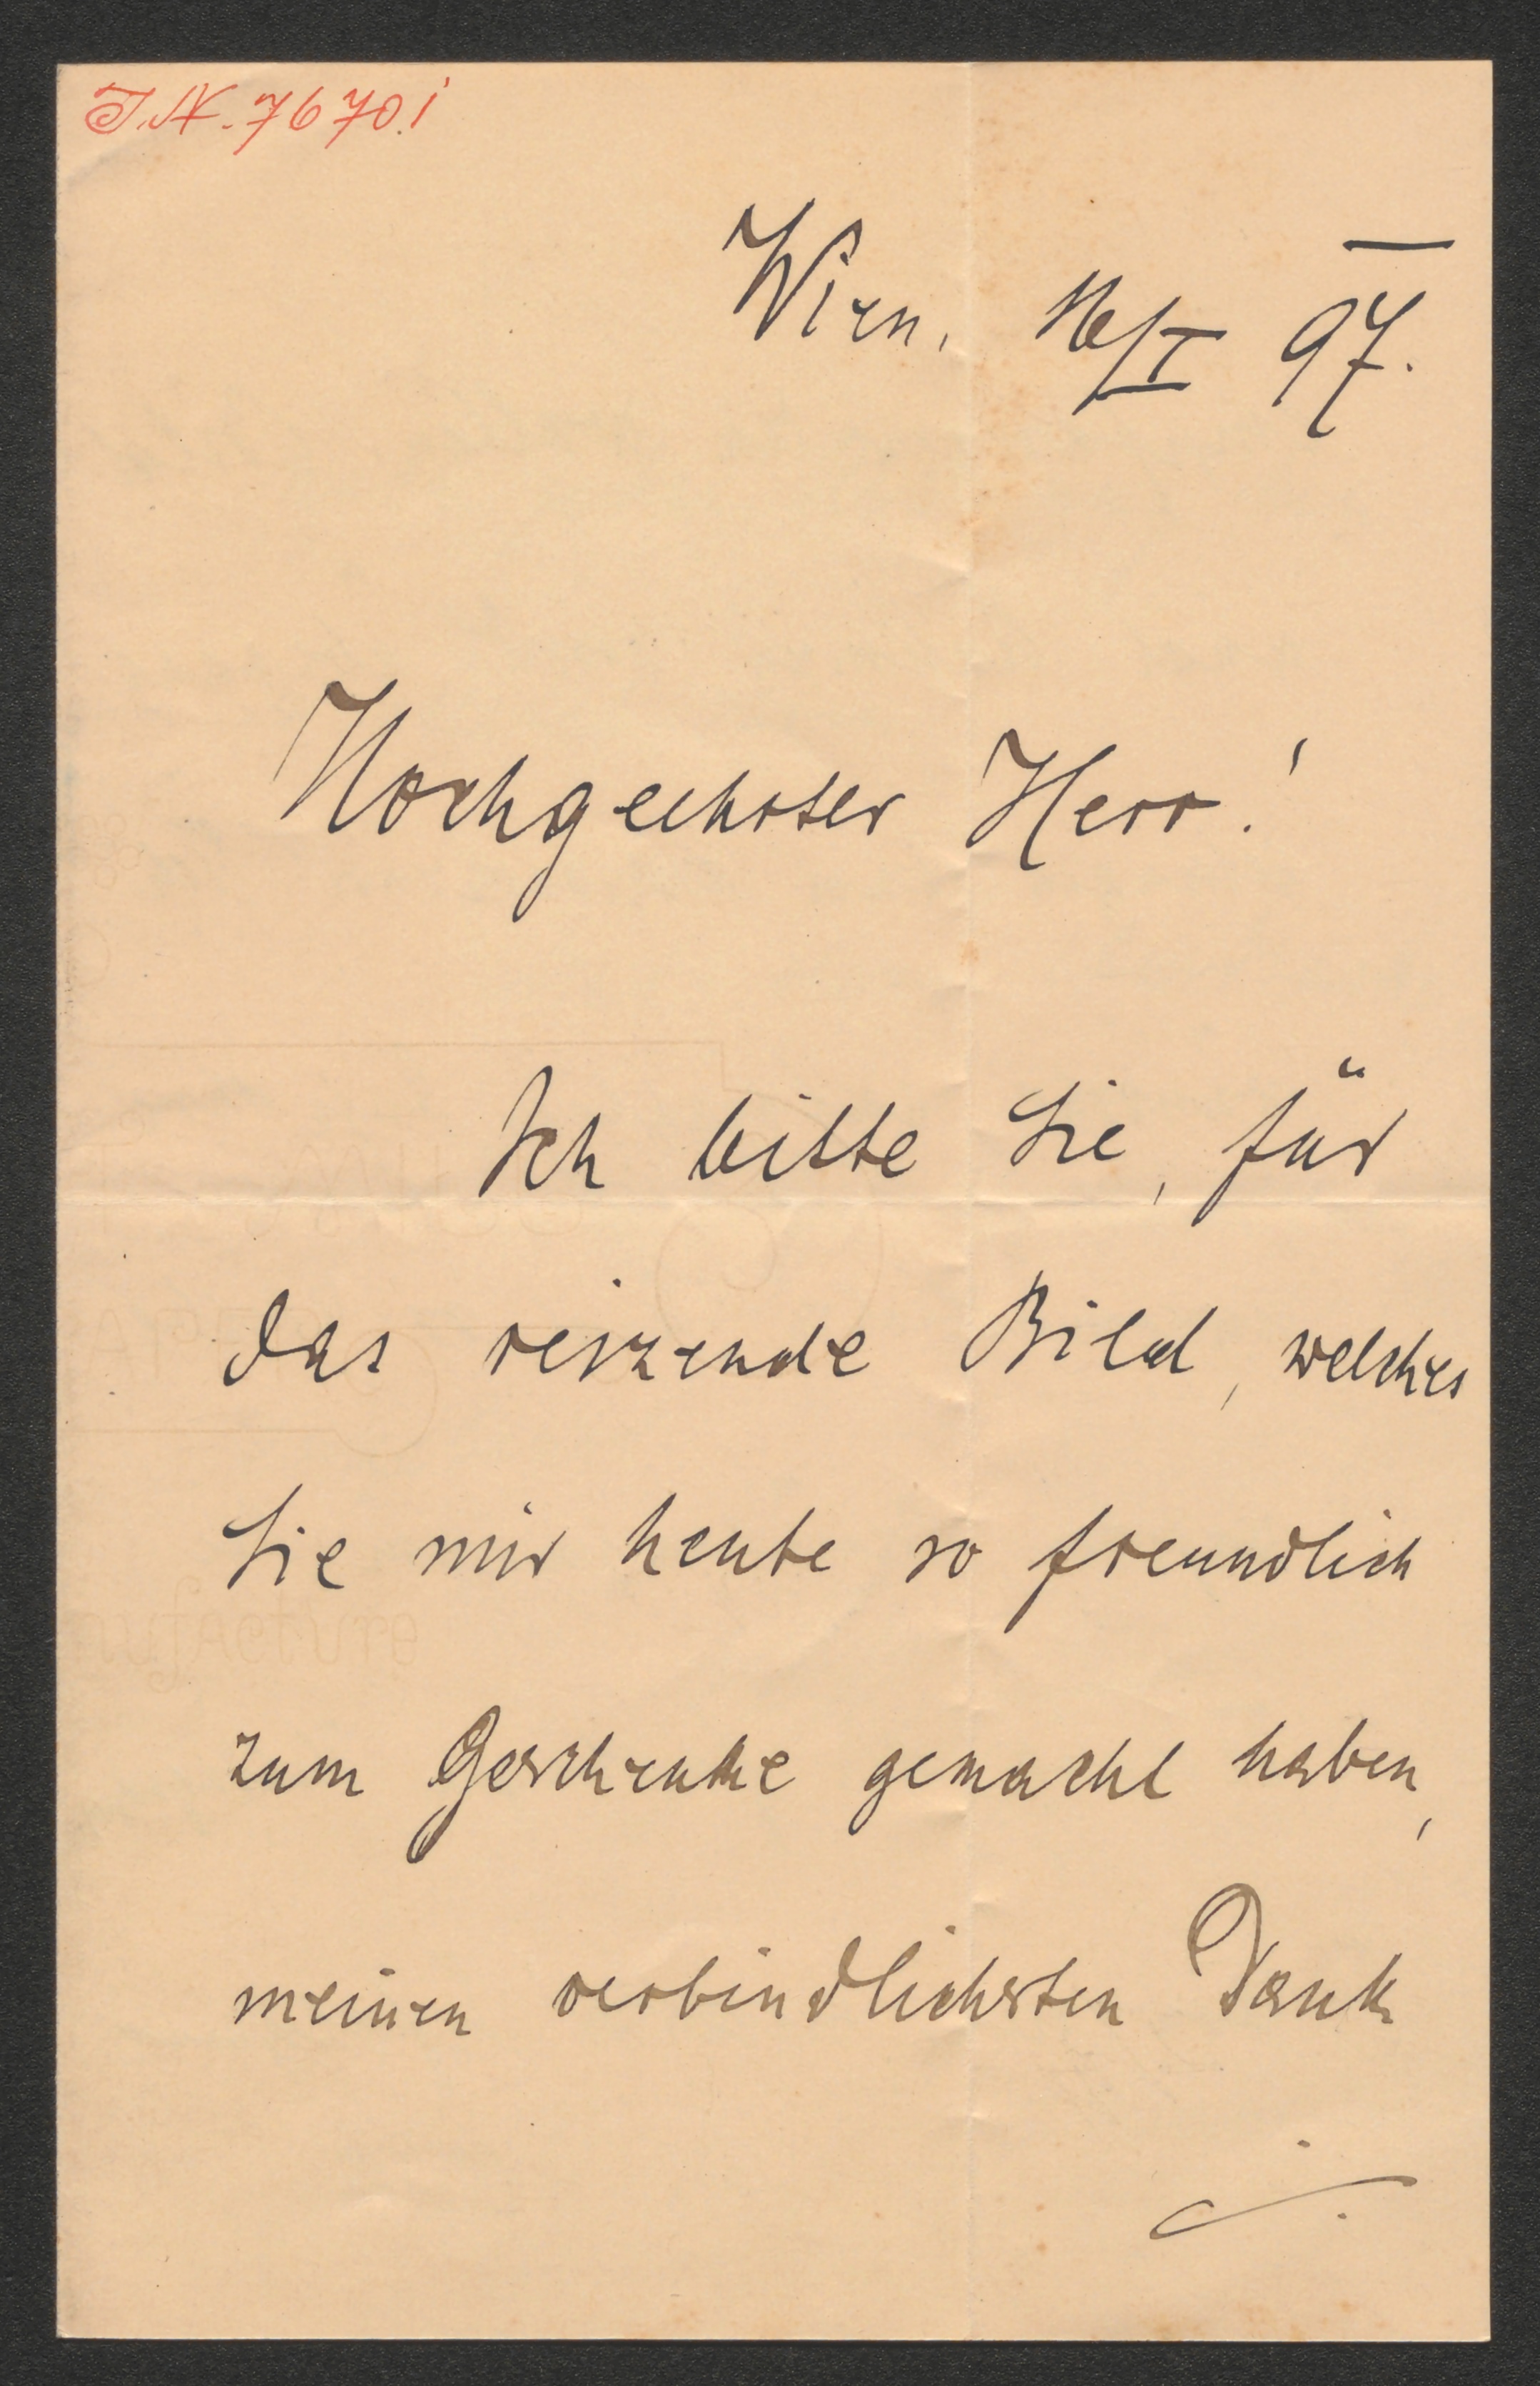 J.N. 76701
Wien, 16/I 97.
Hochgeehrter Herr!
Ich bitte Sie, für
das reizende Bild, welches
Sie mir heute so freundlich
zum Geschenke gemacht haben,
meinen verbindlichsten Dank